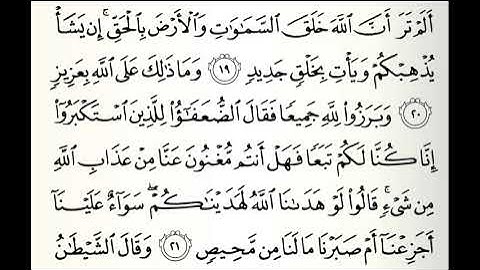 أَلَمْ تَرَ أَنَّ ٱللَّهَ خَلَقَ ٱلسَّمَٰوَٰتِ وَٱلْأَرْضَ بِٱلْحَقِّ ۚ إِن يَشَأْ
يُذْهِبْكُمْ وَيَأْتِ بِخَلْقٍ جَدِيدٍ ١٩ وَمَا ذَٰلِكَ عَلَى ٱللَّهِ بِعَزِيزٍ
٢٠ وَبَرَزُوا۟ لِلَّهِ جَمِيعًا فَقَالَ ٱلضُّعَفَٰٓؤُا۟ لِلَّذِينَ ٱسْتَكْبَرُوٓا۟
إِنَّا كُنَّا لَكُمْ تَبَعًا فَهَلْ أَنتُم مُّغْنُونَ عَنَّا مِنْ عَذَابِ ٱللَّهِ
مِن شَىْءٍ ۚ قَالُوا۟ لَوْ هَدَىٰنَا ٱللَّهُ لَهَدَيْنَٰكُمْ ۖ سَوَآءٌ عَلَيْنَآ
أَجَزِعْنَآ أَمْ صَبَرْنَا مَا لَنَا مِن مَّحِيصٍ ٢١ وَقَالَ ٱلشَّيْطَٰنُ